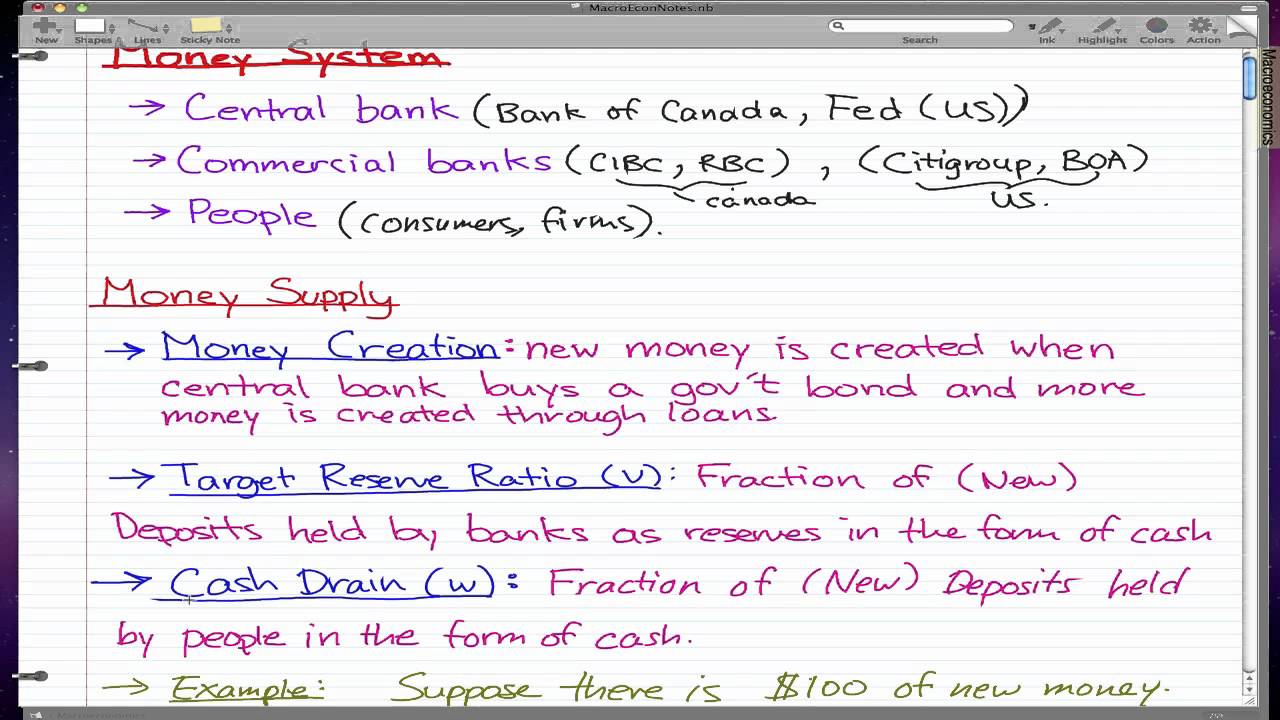 MacroEconNotes.nb
New Shapes Lines Sticky Note Search Ink Highlight Colors Action
Macroeconomics
Money System
→ Central bank (Bank of Canada, Fed (US))
→ Commercial banks (CIBC, RBC) , (Citigroup, BOA)
canada US.
→ People (consumers, firms).
Money Supply
→ Money Creation: new money is created when
central bank buys a gov't bond and more
money is created through loans
→ Target Reserve Ratio (V): Fraction of (New)
Deposits held by banks as reserves in the form of cash
→ Cash Drain (w): Fraction of (New) Deposits held
by people in the form of cash.
→ Example: Suppose there is $100 of new money.
Macroeconomics